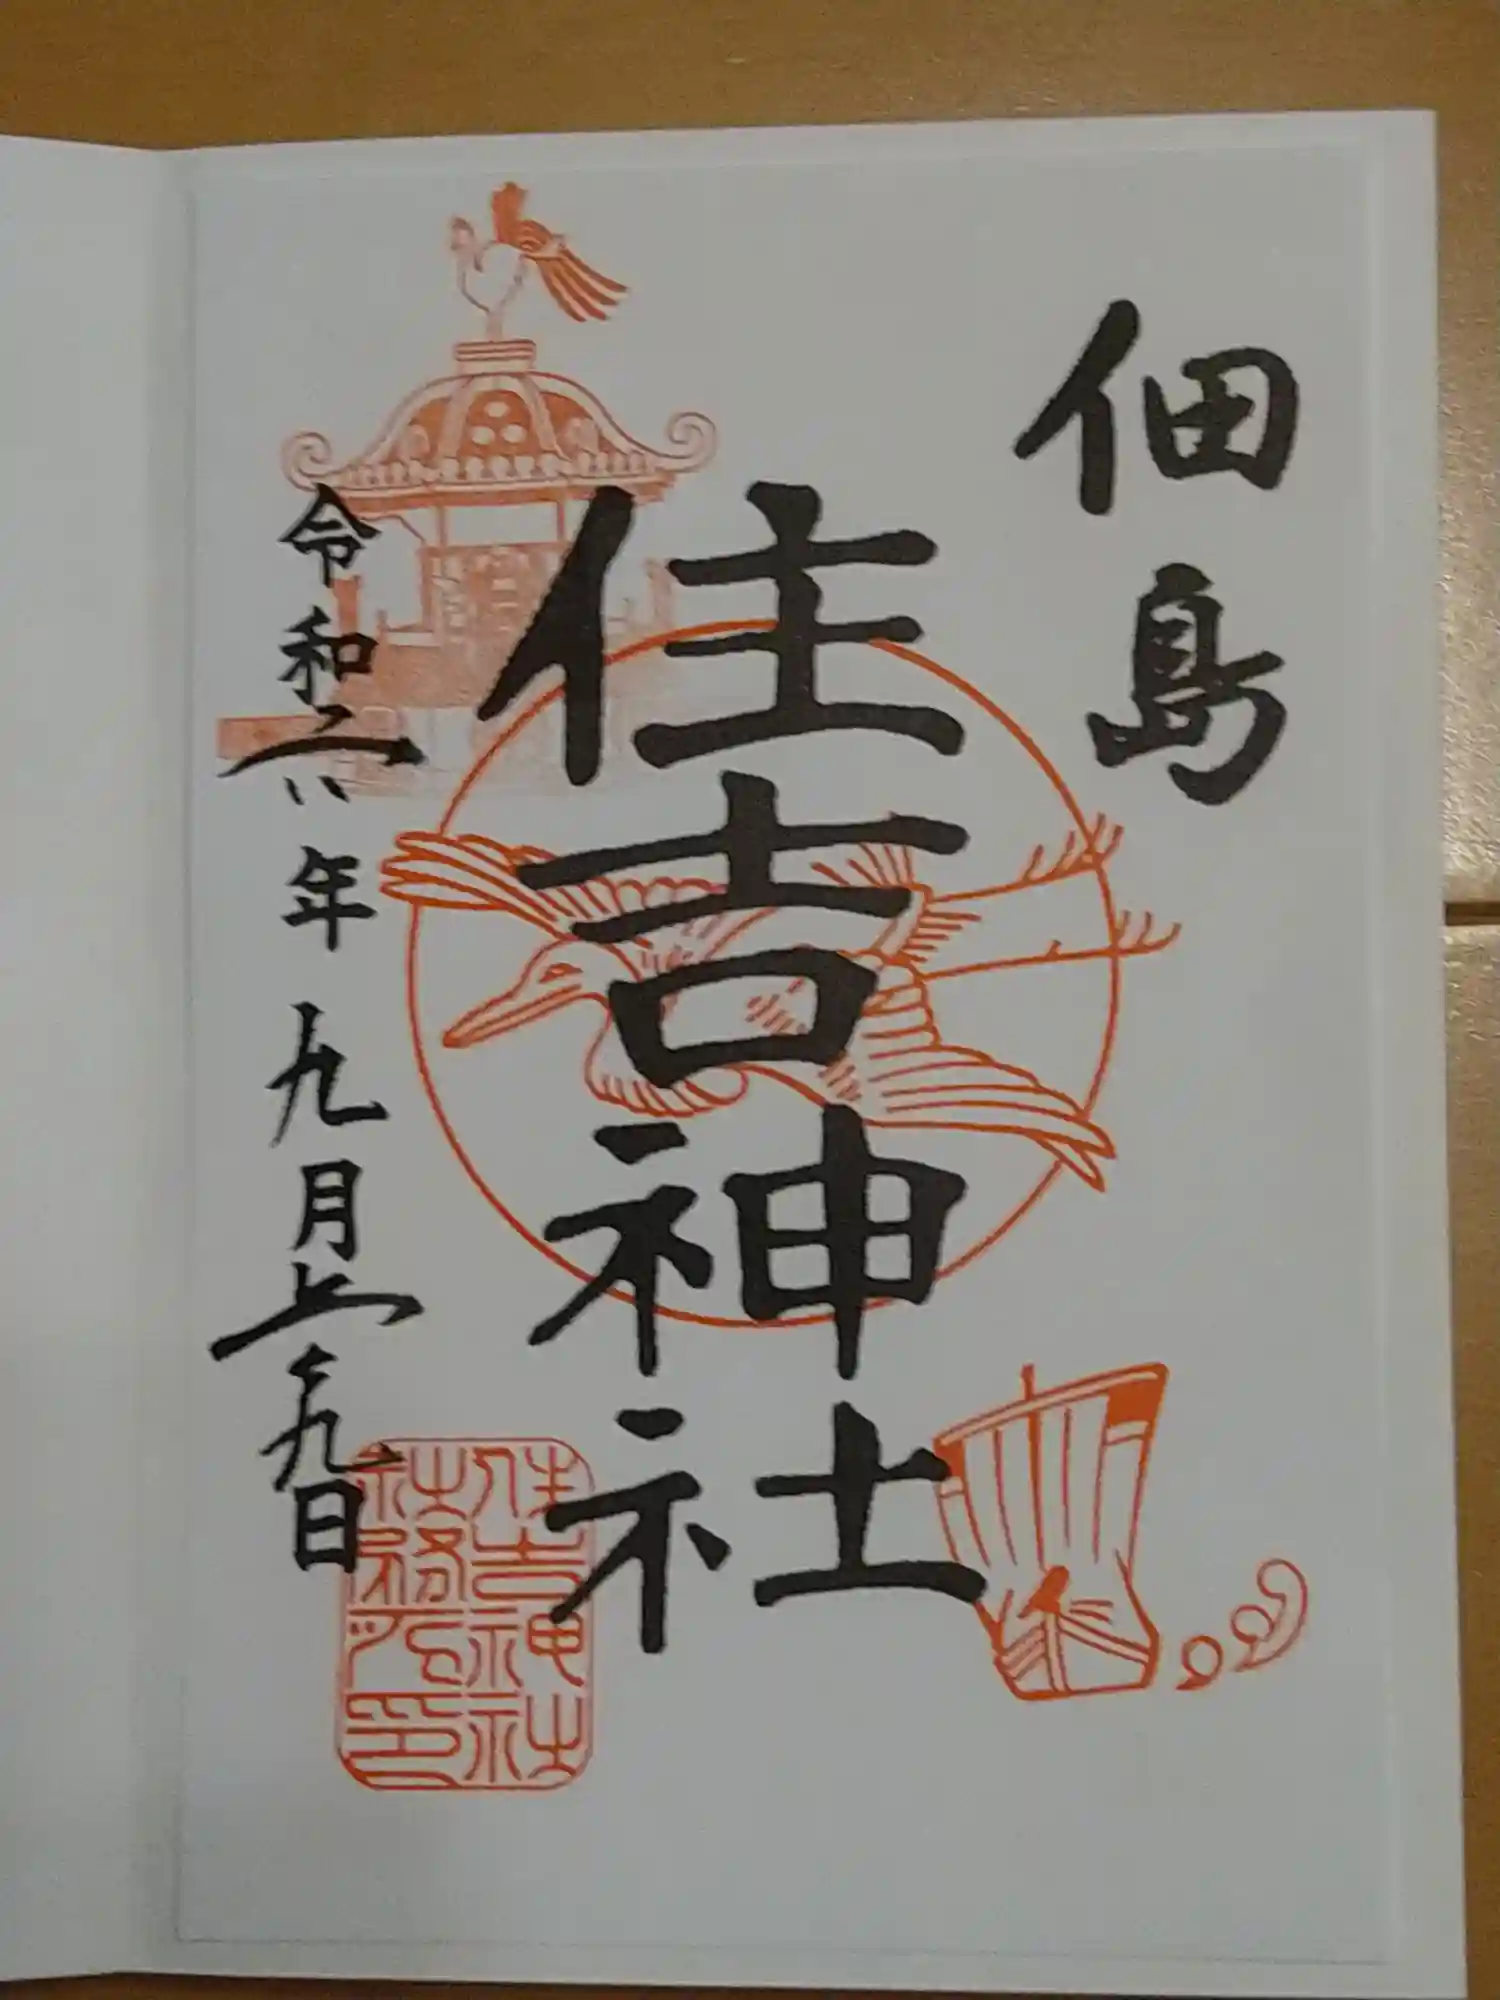 佃島
住吉神社
令和六年九月二十九日
住吉神社
社務所印